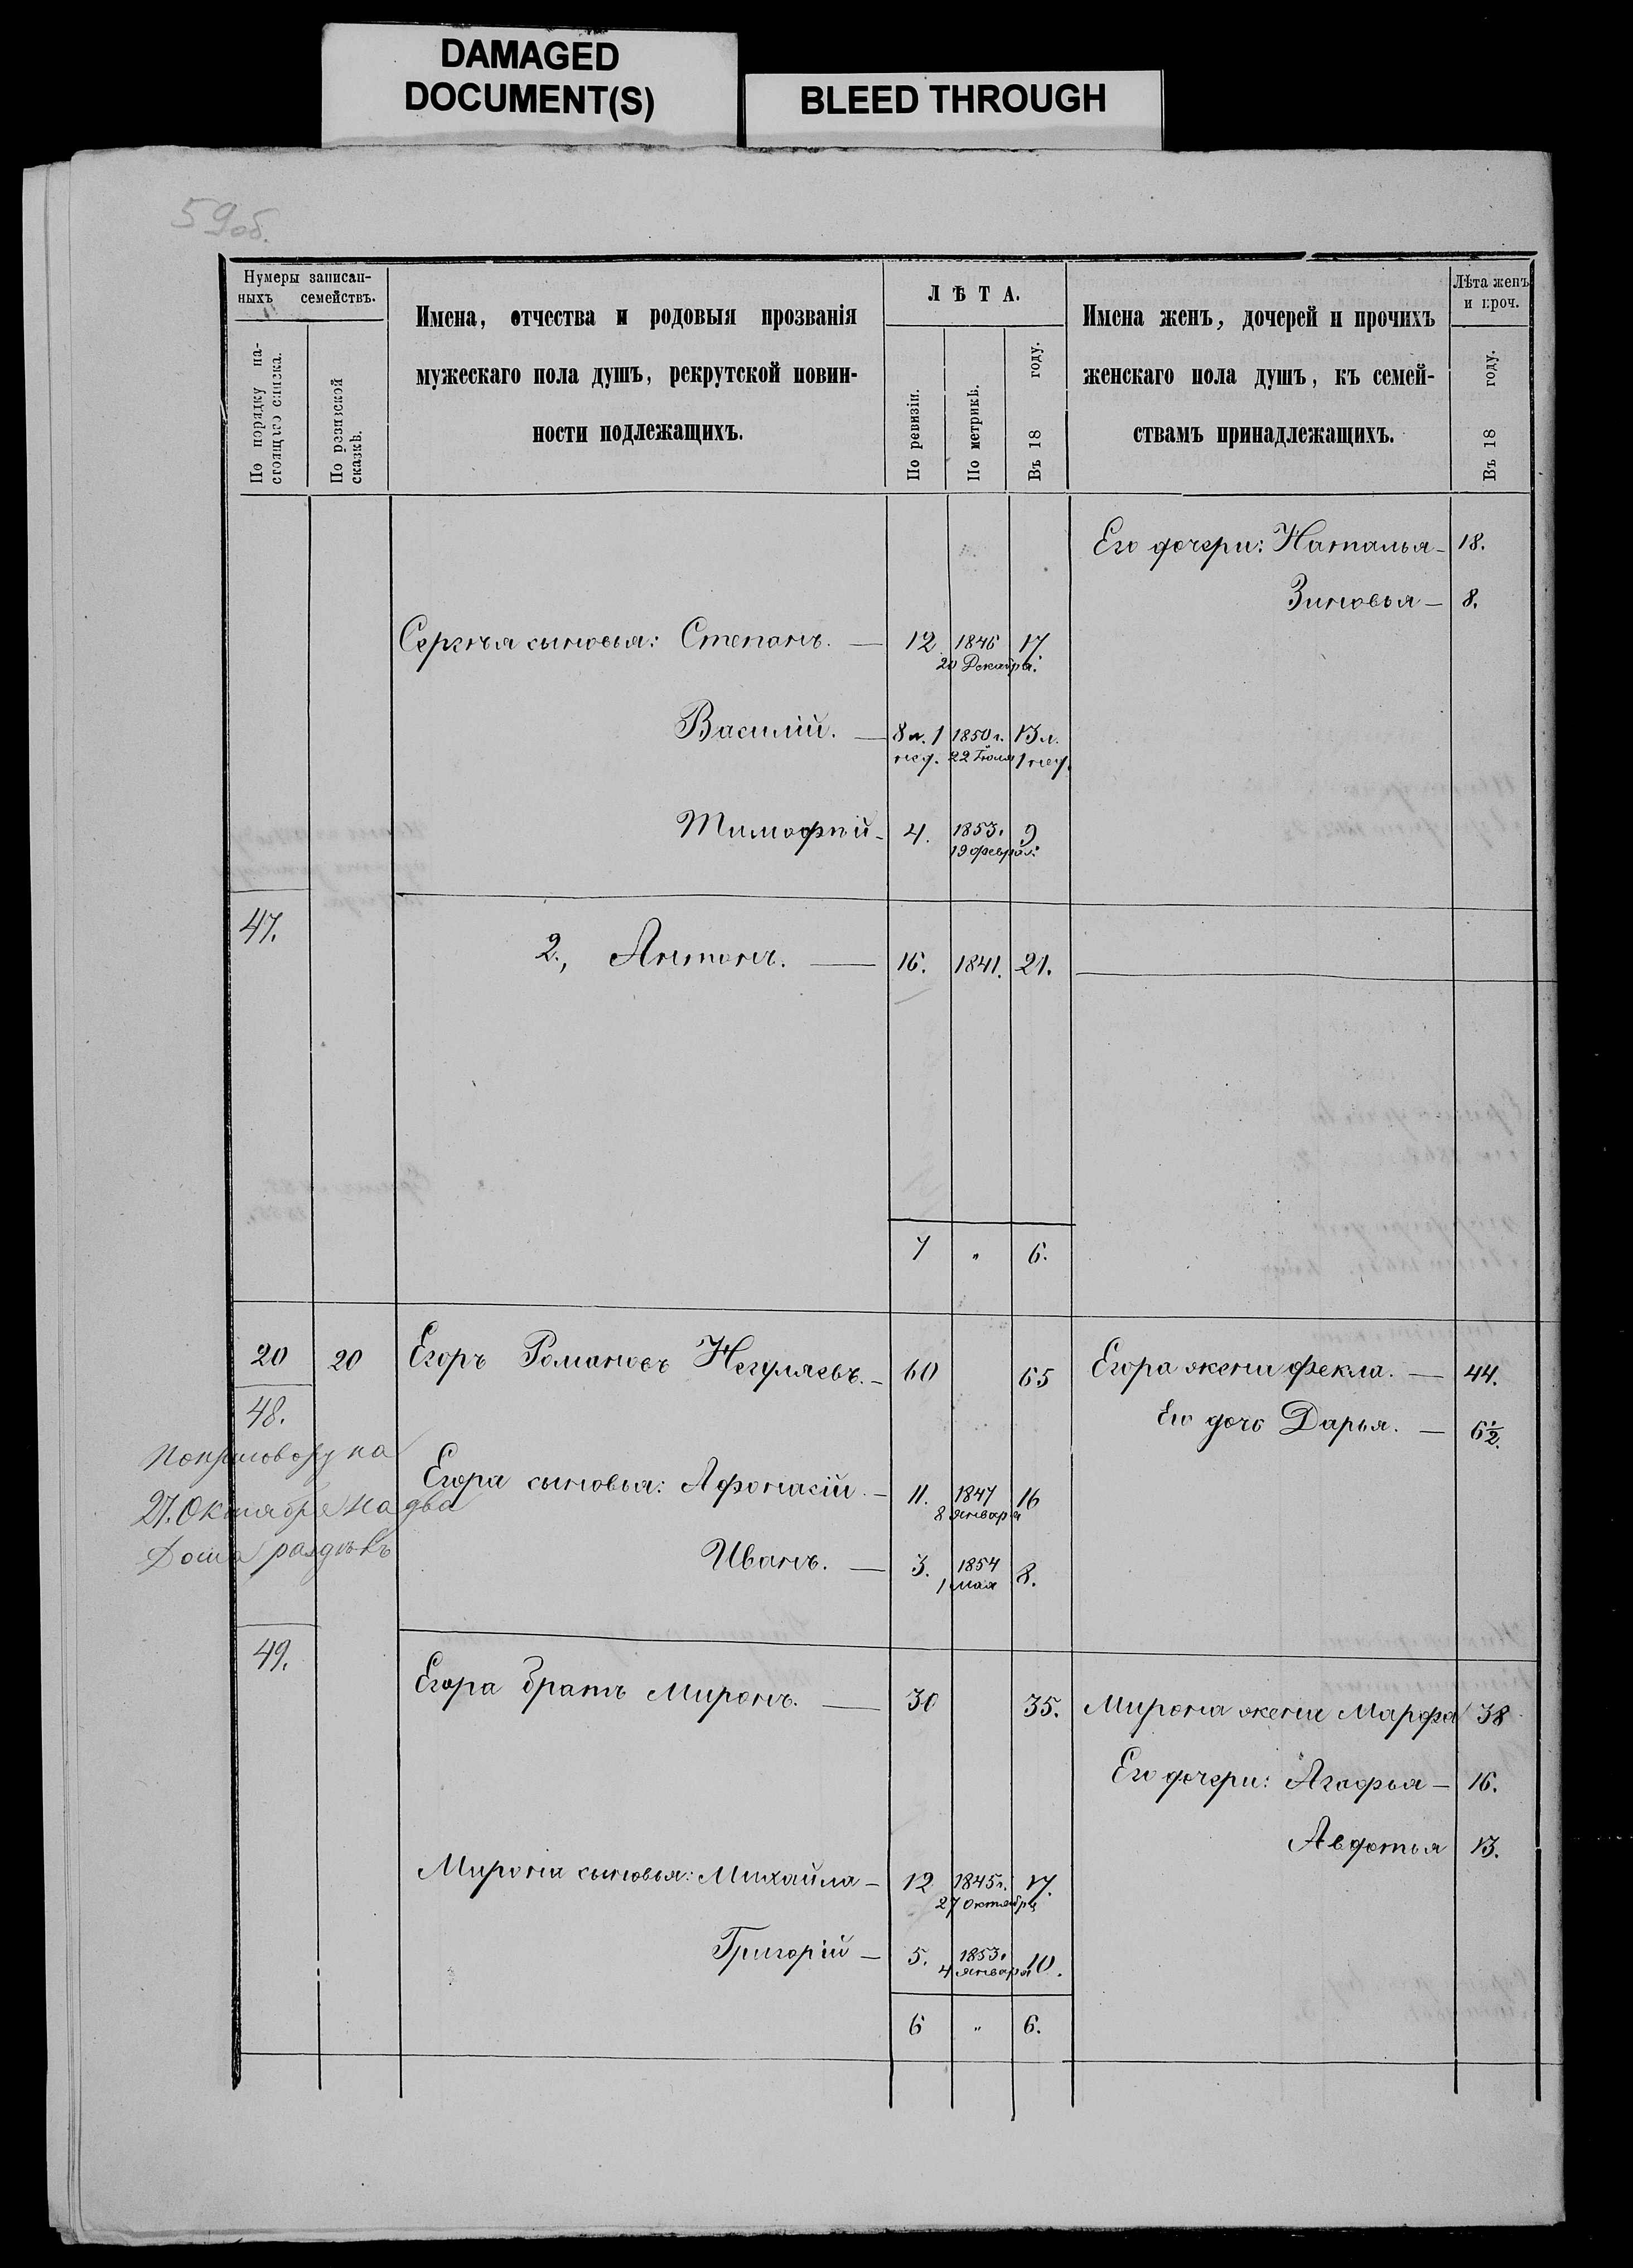 DAMAGED
DOCUMENT(S)
BLEED THROUGH
59об.
Нумеры записан-
ныхъ семействъ.
По порядку на-
стоящаго списка.
По ревизской
сказкѣ.
Имена, отчества и родовыя прозванія
мужескаго пола душъ, рекрутской повин-
ности подлежащихъ.
ЛѢТА.
По ревизіи.
По метрикѣ.
Въ 18 году.
Имена женъ, дочерей и прочихъ
женскаго пола душъ, къ семей-
ствамъ принадлежащихъ.
Лѣта женъ
и проч.
Въ 18 году.
Его дочери: Наталья — 18.
Зиновья — 8.
Сергѣя сыновья: Степанъ. — 12 1846 17.
20 Декабря.
Василій. — 8 л. 1 1850 г. 13 л.
нед. 22 Іюля 1 нед.
Тимофѣй — 4. 1853. 9
19 феврал:
47.
2., Антонъ. — 16. 1841. 21.
7 „ 6.
20 20 Егоръ Романовъ Негуляевъ. — 60 65 Егора жена Фекла. — 44.
48.
Его дочь Дарья. — 6½.
По приговору на
27. Октября на два
Дома раздѣлъ
Егора сыновья: Афонасій — 11. 1847 16
8 Января
Иванъ. — 3. 1854 8.
1 мая
49.
Егора братъ Миронъ. — 30 35. Мирона жена Марфа 38
Его дочери: Агафья — 16.
Авдотья 13.
Мирона сыновья: Михайла — 12 1845 г. 17.
27 Октября
Григорій — 5. 1853. 10.
4 Января
6 „ 6.